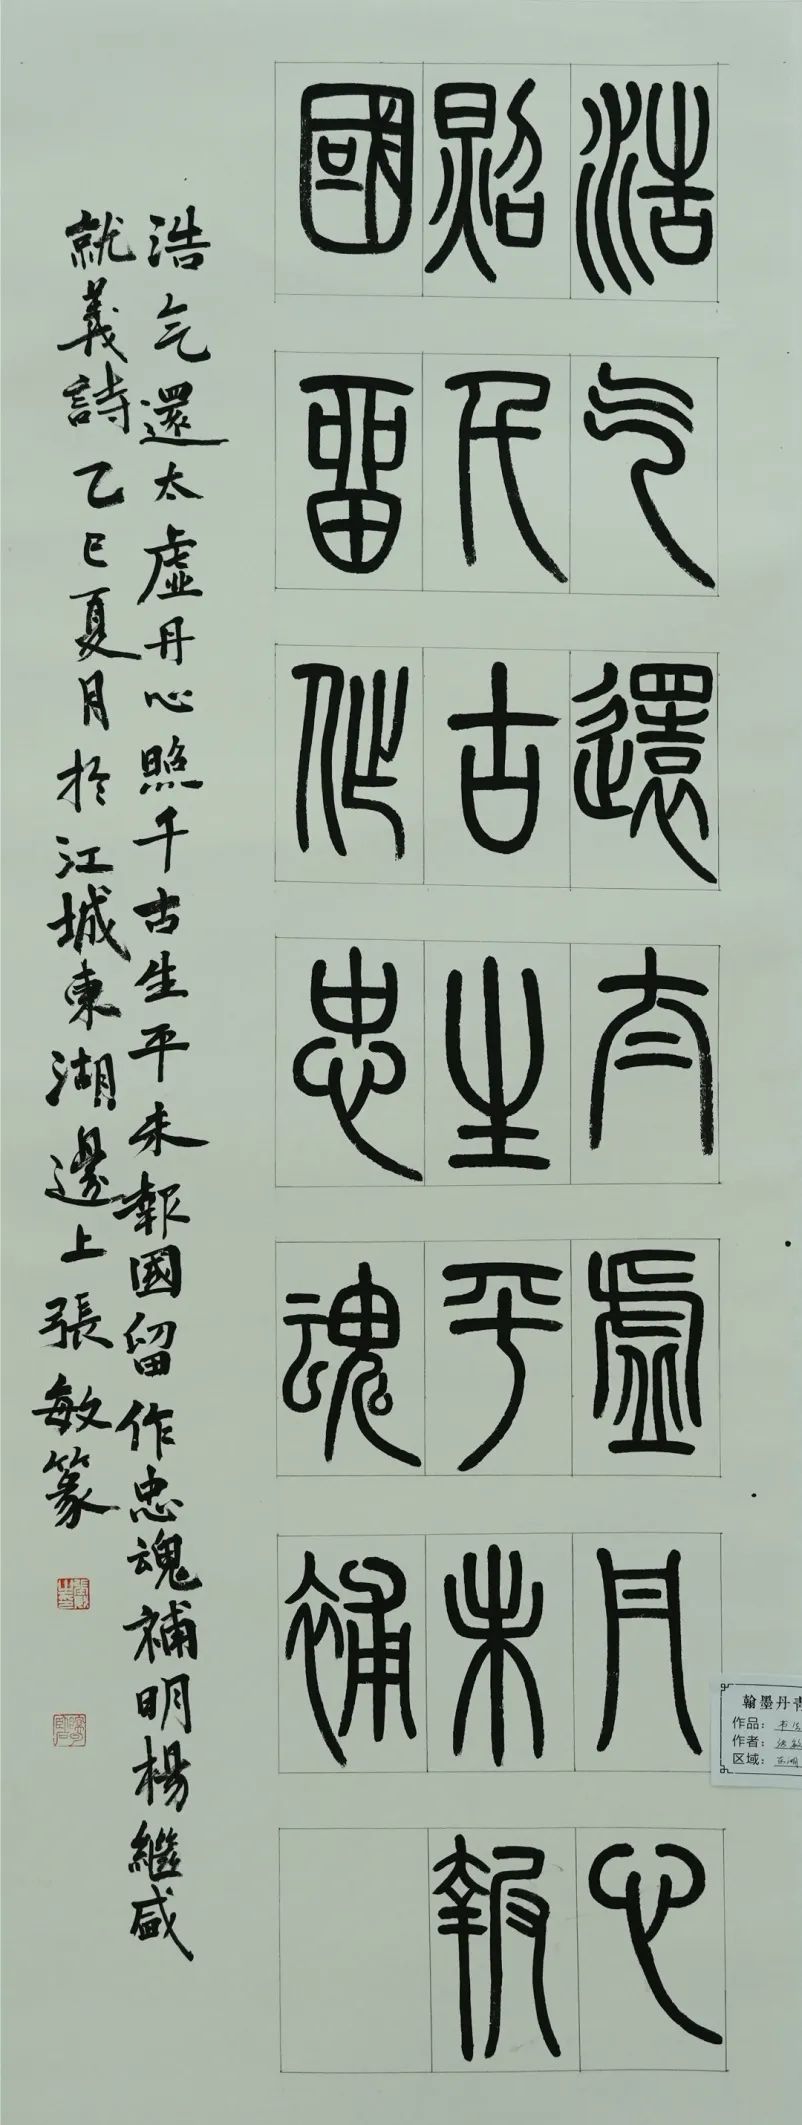 浩气還太虛丹心
照千古生平未報
國畱作忠魂補
浩气還太虛丹心照千古生平未報國留作忠魂補明楊繼盛
就義詩乙巳夏月於江城東湖邊上張敏篆
翰墨丹青
作品：书法
作者：张敏
区域：东湖